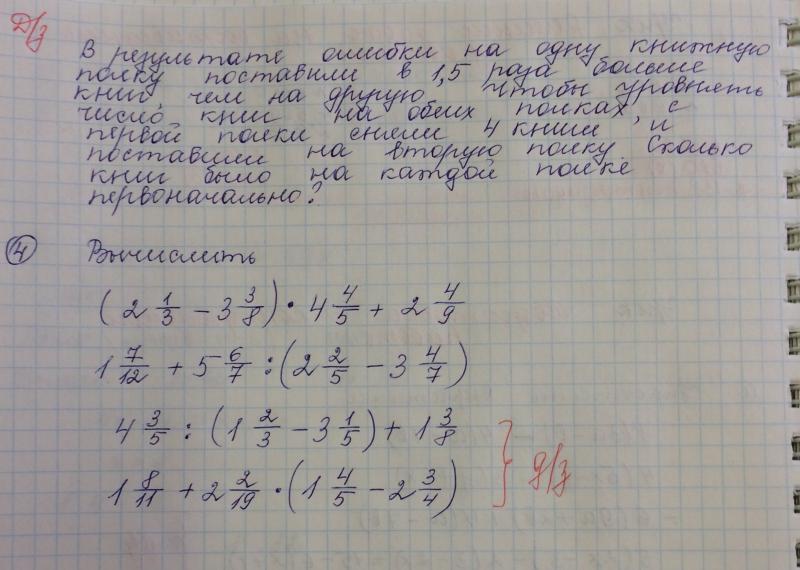 Д/з
В результате ошибки на одну книжную
полку поставили в 1,5 раза больше
книг, чем на другую. Чтобы уровнять
число книг на обеих полках, с
первой полки сняли 4 книги и
поставили на вторую полку. Сколько
книг было на каждой полке
первоначально?
④ Вычислить
(2 1/3 − 3 3/8) · 4 4/5 + 2 4/9
1 7/12 + 5 6/7 : (2 2/5 − 3 4/7)
4 3/5 : (1 2/3 − 3 1/5) + 1 3/8
1 8/11 + 2 2/19 · (1 4/5 − 2 3/4)
д/з